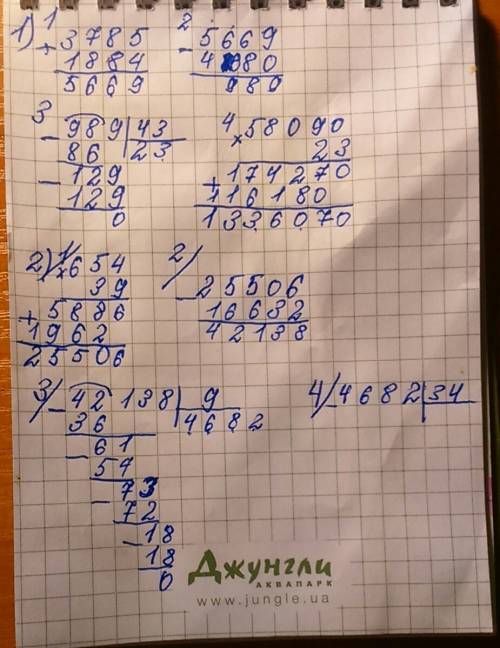 1) 1 + 3785 2 - 5669
1884 4080
5669 980
3 - 989 | 43 4 × 58090
86 | 23 23
- 129 + 174270
129 116180
0 1336070
2) 1/ × 654 2/ - 25506
39 16632
+ 5886 42138
1962
25506
3/ - 42138 | 9 4/ - 4682 | 34
36 | 4682
- 61
54
- 73
72
- 18
18
0
Джунгли
АКВАПАРК
www.jungle.ua